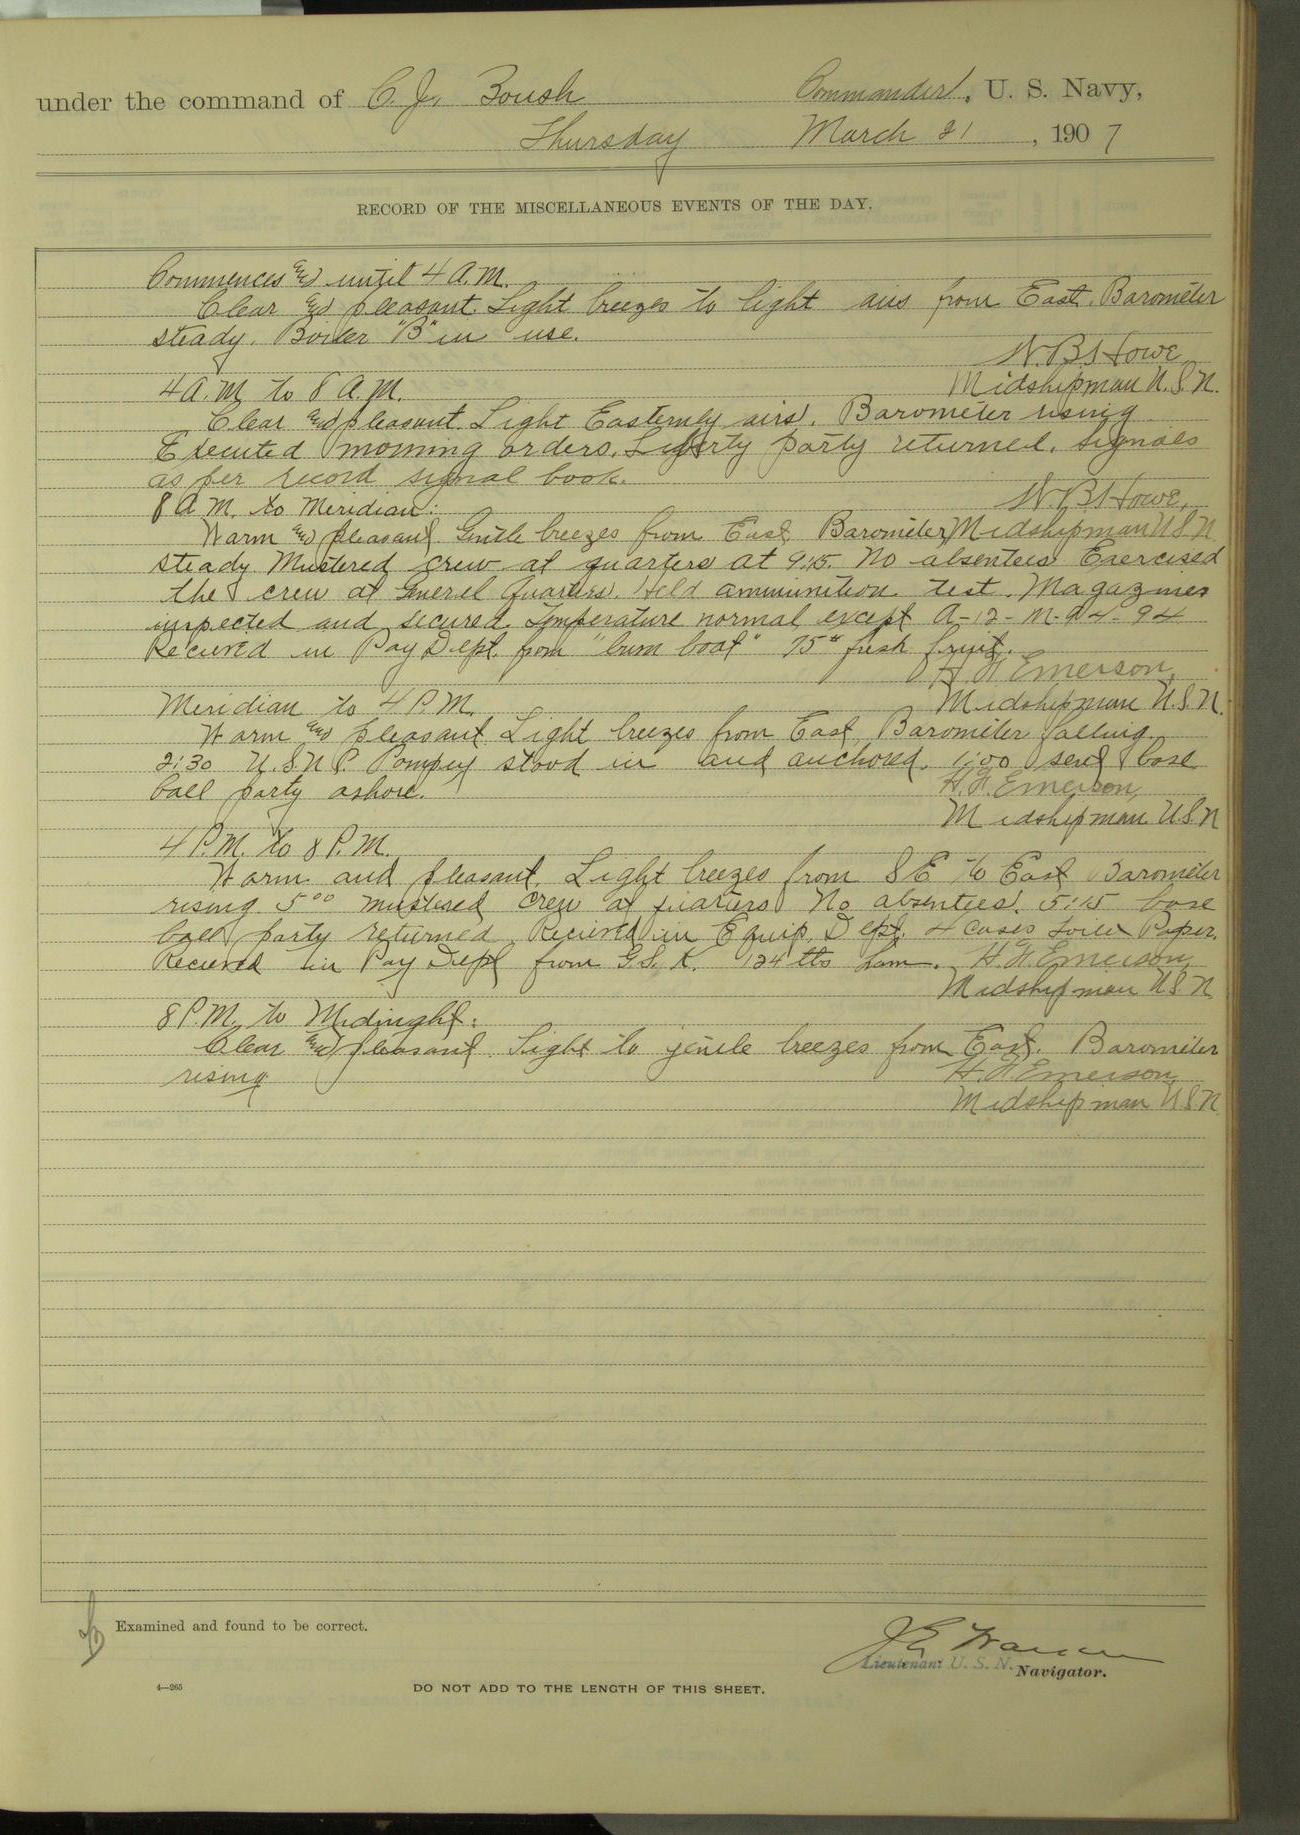 under the command of C. J. Boush Commander, U. S. Navy,
Thursday March 21, 1907
RECORD OF THE MISCELLANEOUS EVENTS OF THE DAY.
Commences and until 4 A.M.
Clear and pleasant. Light breezes to light airs from East. Barometer
steady. Boiler "B" in use.
W. B. Howe
Midshipman U.S.N.
4 A.M. to 8 A.M.
Clear and pleasant. Light Easternly airs. Barometer rising
Executed morning orders. Liberty party returned. Signals
as per record signal book.
8 A.M. to Meridian:
W. B. Howe,
Midshipman U.S.N.
Warm and pleasant. Gentle breezes from East. Barometer
steady. Mustered crew at quarters at 9:15. No absentees. Exercised
the crew at General Quarters. Held ammunition test. Magazines
inspected and secured. Temperature normal except A-12-M-94-94
Recieved in Pay Dept. from "bum boat" 75# fresh fruit.
Emerson,
Midshipman U.S.N.
Meridian to 4 P.M.
Warm and pleasant. Light breezes from East. Barometer falling.
2:30 U.S.N.S. Pompey stood in and anchored. 1:00 send base
ball party ashore.
Emerson,
Midshipman U.S.N
4 P.M. to 8 P.M.
Warm and pleasant. Light breezes from S E to East Barometer
rising 5 00 mustered crew at quarters No absentees. 5:15 base
ball party returned. Recieved in Equip. Dept. 4 cases Paper.
Recieved in Pay Dept from G.S.K. 124 lbs ham. Emerson
Midshipman U.S.N
8 P.M. to Midinght:
Clear and pleasant. Light to gentle breezes from East. Barometer
rising
Emerson
Midshipman U.S.N
Examined and found to be correct.
Lieutenant U. S. N. Navigator.
4—265
DO NOT ADD TO THE LENGTH OF THIS SHEET.